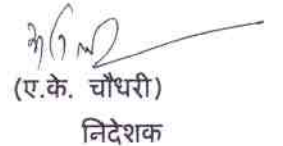 (ए.के. चौधरी)
निदेशक